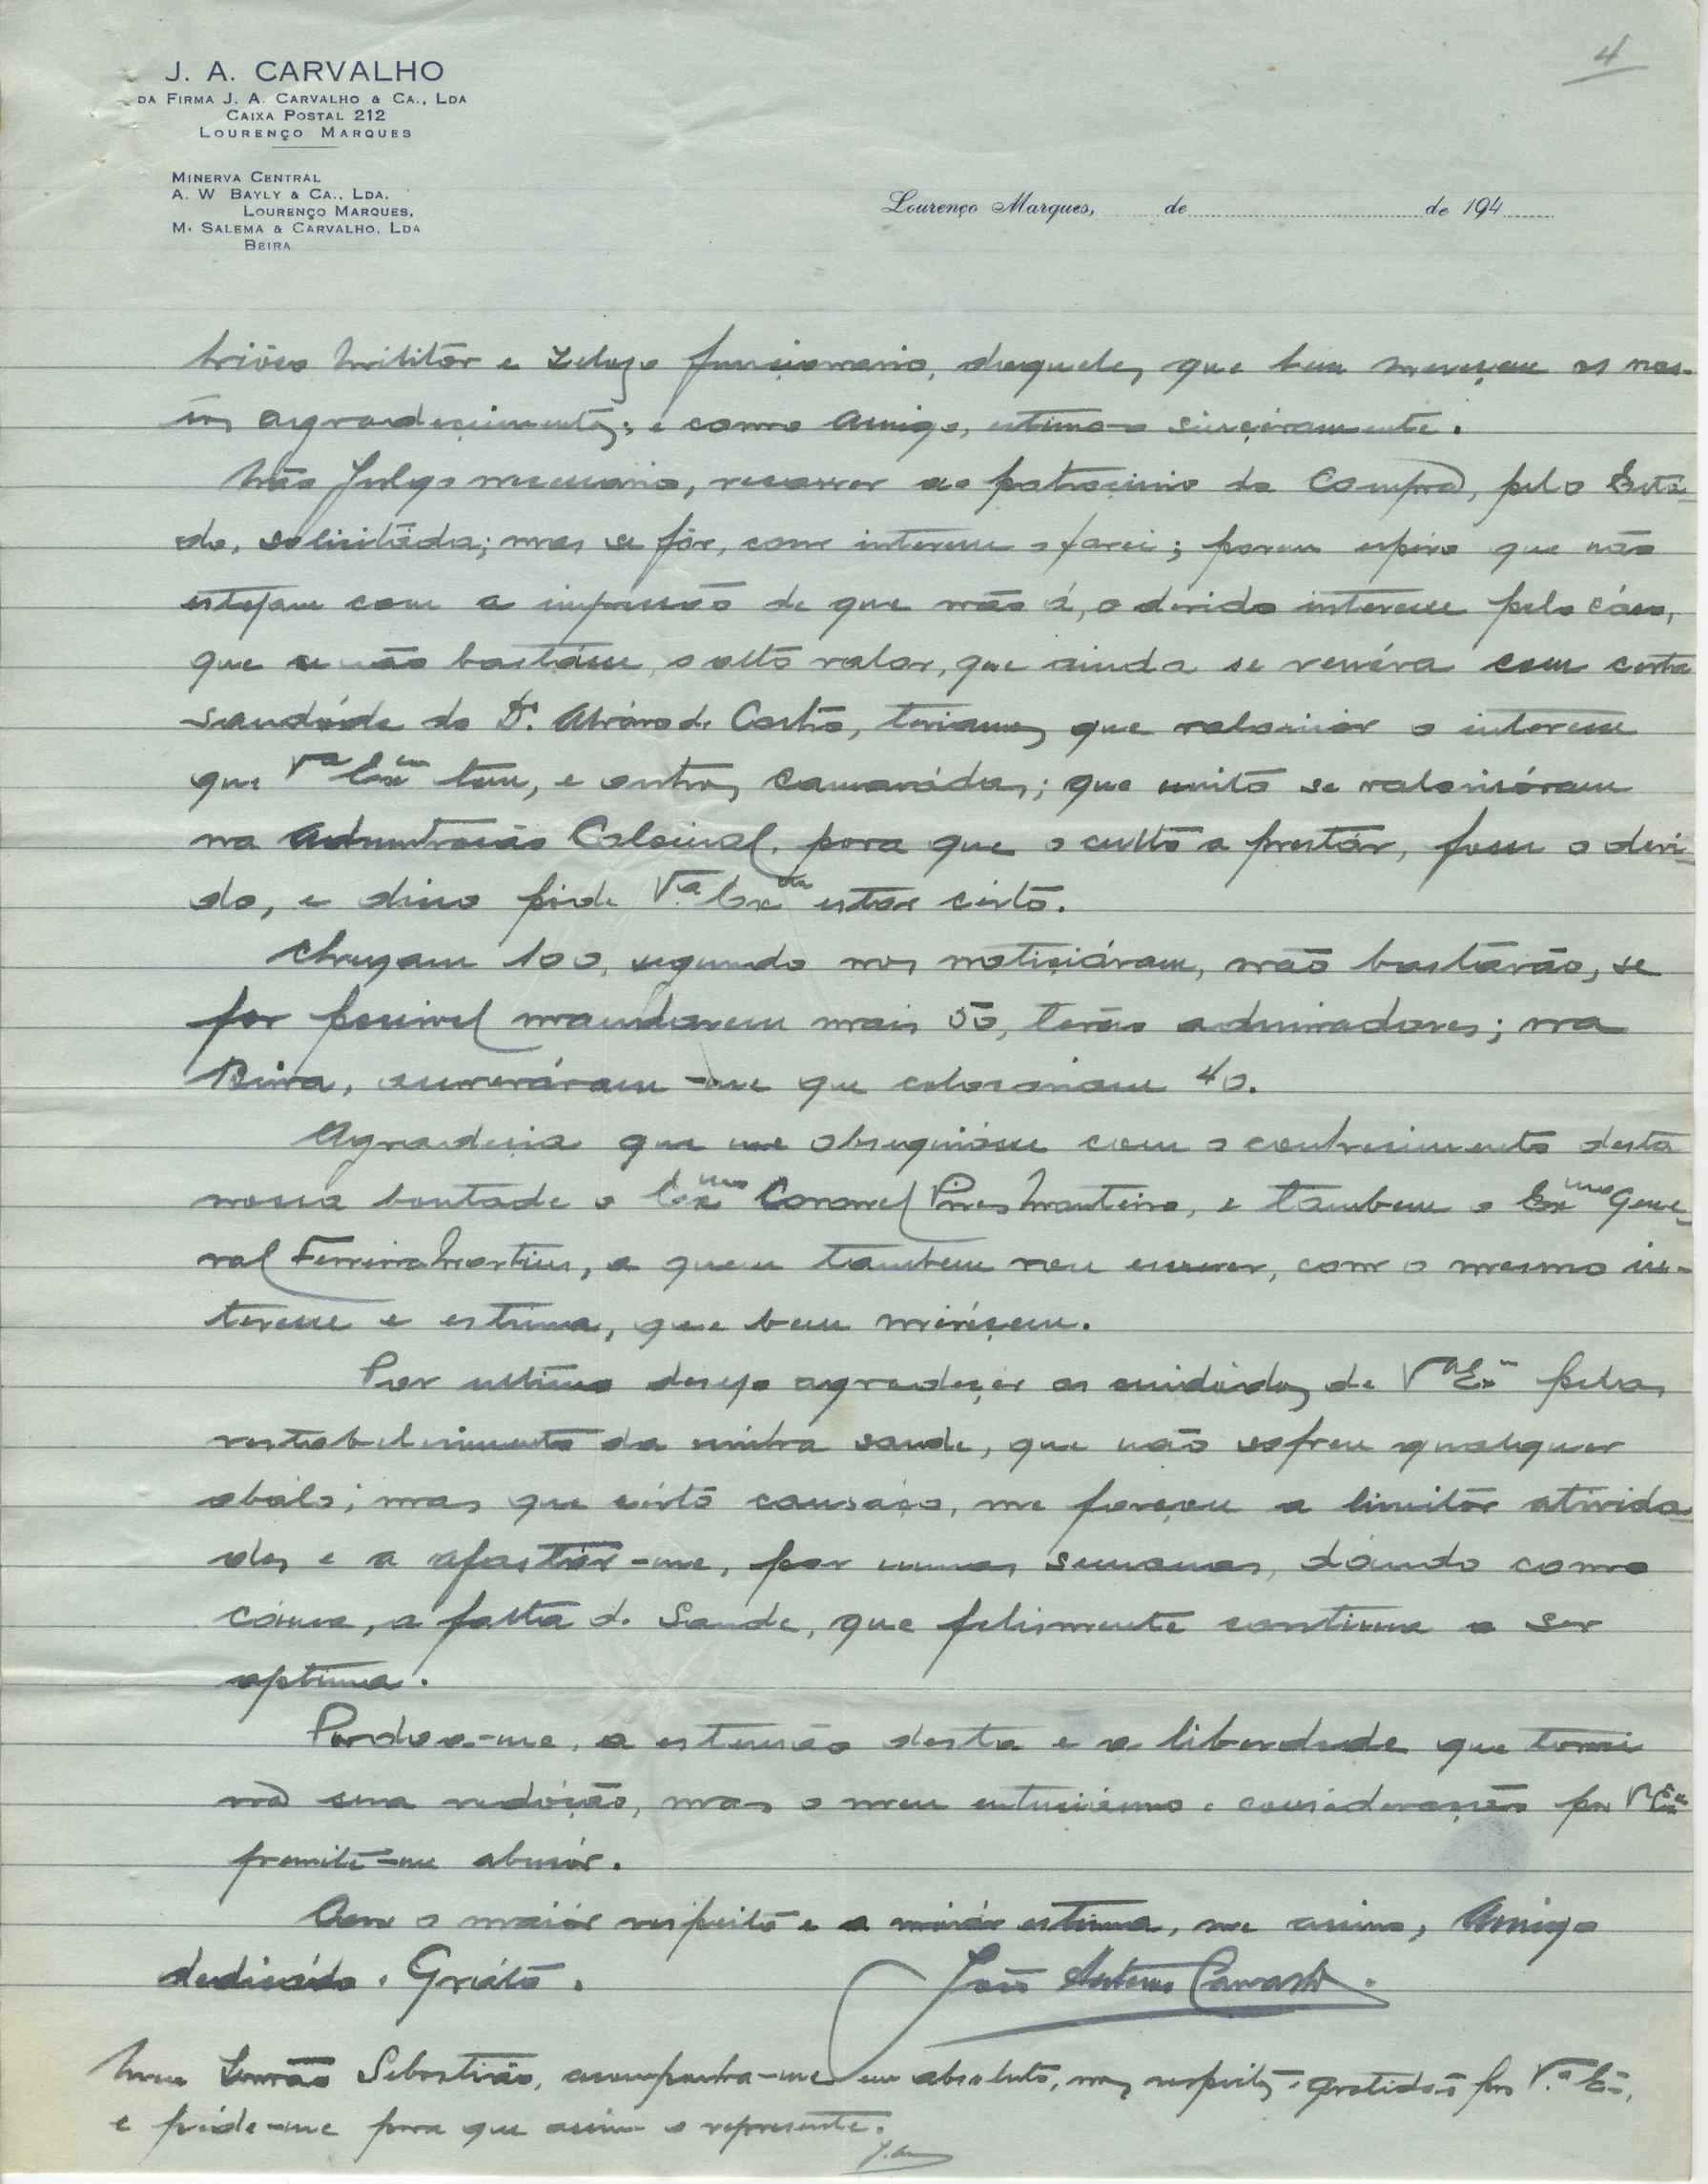 4
J. A. CARVALHO
DA FIRMA J. A. CARVALHO & CA., LDA
CAIXA POSTAL 212
LOURENÇO MARQUES
MINERVA CENTRAL
A. W BAYLY & CA., LDA.
LOURENÇO MARQUES,
M. SALEMA & CARVALHO, LDA
BEIRA
Lourenço Marques, de de 194
militár e zelozo funcionario, daqueles que bem mereçem os nos-
sos agradeçimentos; e como Amigo, estimo-o sinçéramente.
Não julgo necessario, recorrer ao patrocinio da Compra, pelo Està-
do, solicitáda; mas se fôr, com interesse o farei; porem espéro que não
estejam com a impressão de que não á, o devido interesse pelo cáso,
que se não bastásse, o alto valor, que ainda se venéra com certa
saudáde do Dr. Alváro de Castro, teriamos que valorisár o interesse
que Va Exa tem, e outros Camarádas; que muito se valorisáram
na Colonial, para que o culto a prestár, fosse o devi-
do, e disso póde Va. Exa estar cérto.
Chegam 100, segundo nos notiçiáram, não bastárão, se
for possivel mandarem mais 50, terão admiradores; na
Beira, asseveráram-me que colocariam 40.
Agradecia que me obsequiásse com o conhecimento desta
nossa bontade o Exmo Coronel Pires Monteiro, e tambem o Exmo Gene-
ral Ferreira Martins, a quem tambem vou escrever, com o mesmo in-
teresse e estima, que bem meréçem.
Por ultimo desejo agradeçer os cuidádos de Va Exa pelas
restabelecimento da minha saude, que não sofreu qualquer
abálo; mas que cérto cansáço, me forçou a limitár ativida-
des e a afastár-me, por umas semanas, dándo como
cáusa, a falta de Saude, que felismente continua a ser
optima.
Perdoe-me, a estensão desta e a liberdade que tomei
na sua redáção, mas o meu entusiásmo e consideração por V Exa
premite-me abusár.
Com o maiór respeito e a maiór estima, me assino, Amigo
dedicádo e Gráto.
João Antonio Carvalho.
Meu Irmão Sebastião, acompanha-me em absoluto, nos respeitos e gratidão por V.a Ex.,
e péde-me para que assim o represente.